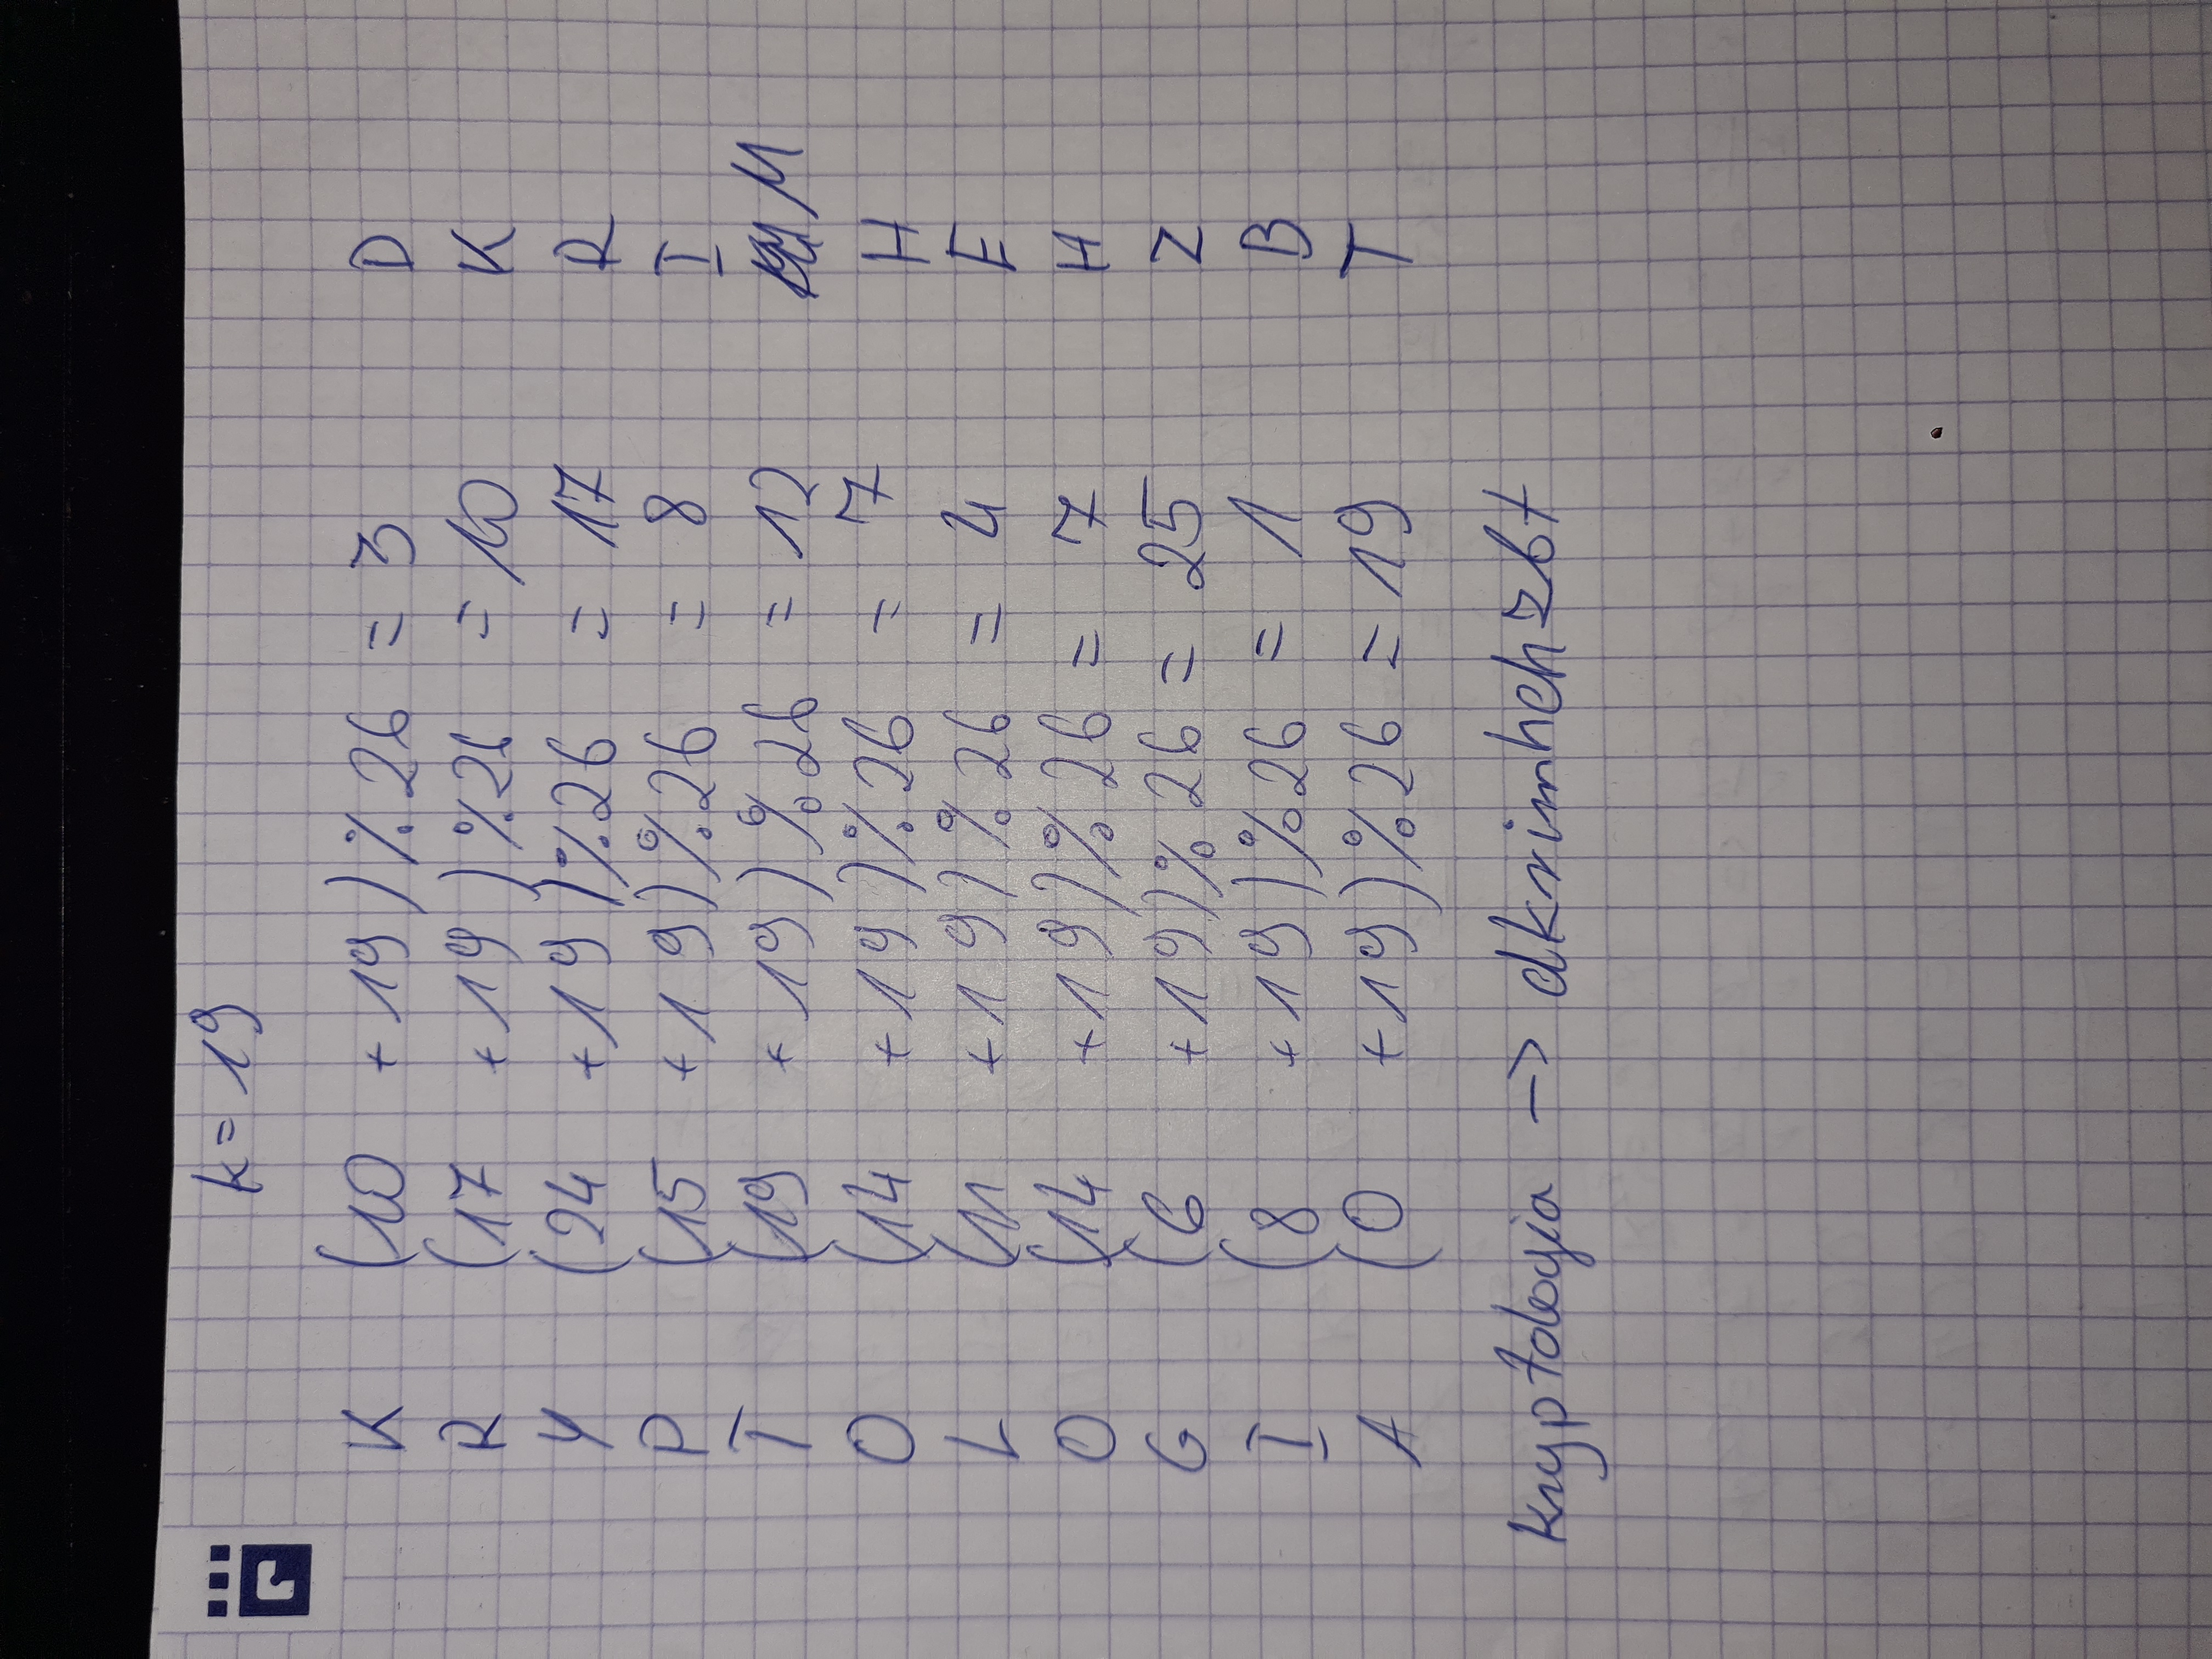 k = 19
K (10 + 19) % 26 = 3 D
R (17 + 19) % 26 = 10 K
Y (24 + 19) % 26 = 17 R
P (15 + 19) % 26 = 8 I
T (19 + 19) % 26 = 12 M
O (14 + 19) % 26 = 7 H
L (11 + 19) % 26 = 4 E
O (14 + 19) % 26 = 7 H
G (6 + 19) % 26 = 25 Z
I (8 + 19) % 26 = 1 B
A (0 + 19) % 26 = 19 T
kryptologia -> dkrimhehzbt